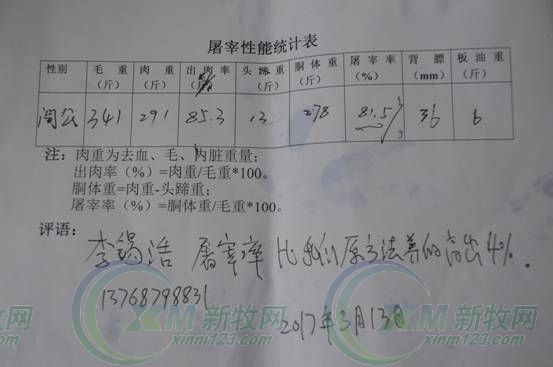 屠宰性能统计表
性别 毛重(斤) 肉重(斤) 出肉率 头蹄重(斤) 胴体重(斤) 屠宰率(%) 背膘(mm) 板油重(斤)
阉公 341 291 85.3 13 278 81.5 36 6
注:肉重为去血、毛、内脏重量;
出肉率(%)=肉重/毛重*100。
胴体重=肉重-头蹄重;
屠宰率(%)=胴体重/毛重*100。
评语:
李锡浩 屠宰率比我们原方法养的高出4%.
13768798831
2017年3月13日
XM 新牧网
xinm123.com
XM 新牧网
xinm123.com